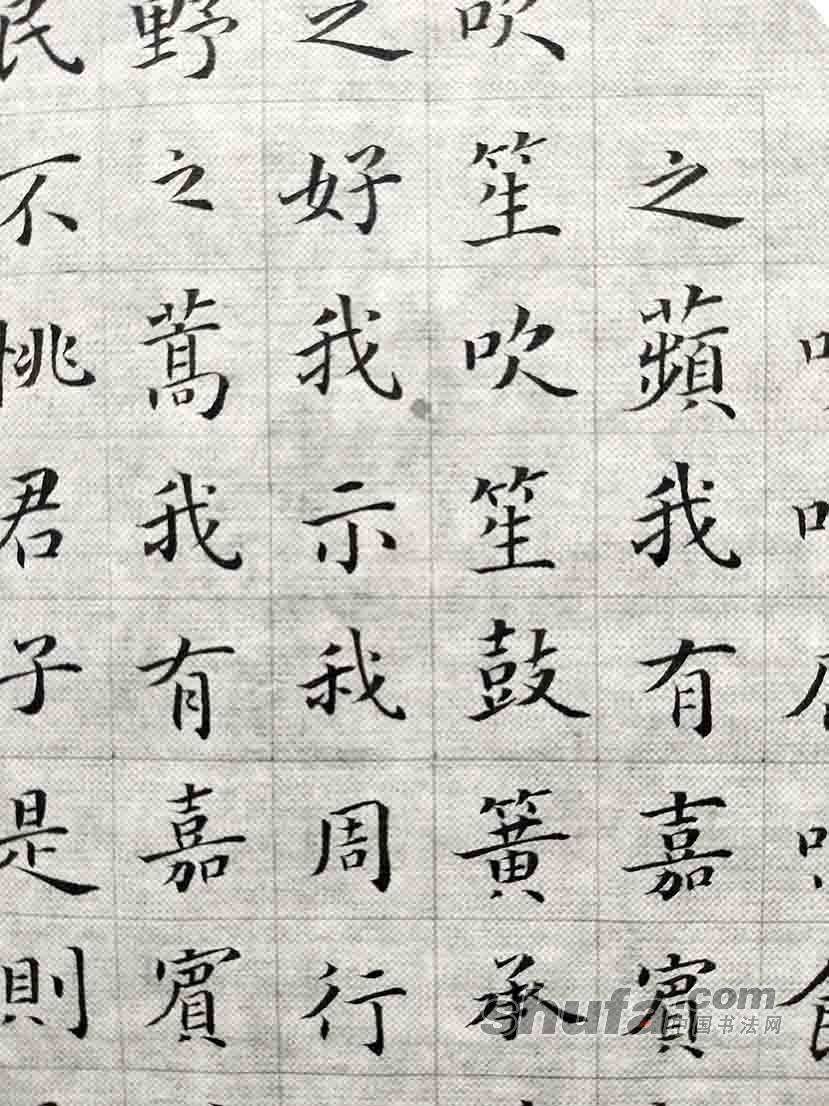 之蘋我有嘉賓
吹笙吹笙鼓簧承
之好我示我周行
野之蒿我有嘉賓
民不恌君子是則
shufa.com
中国书法网